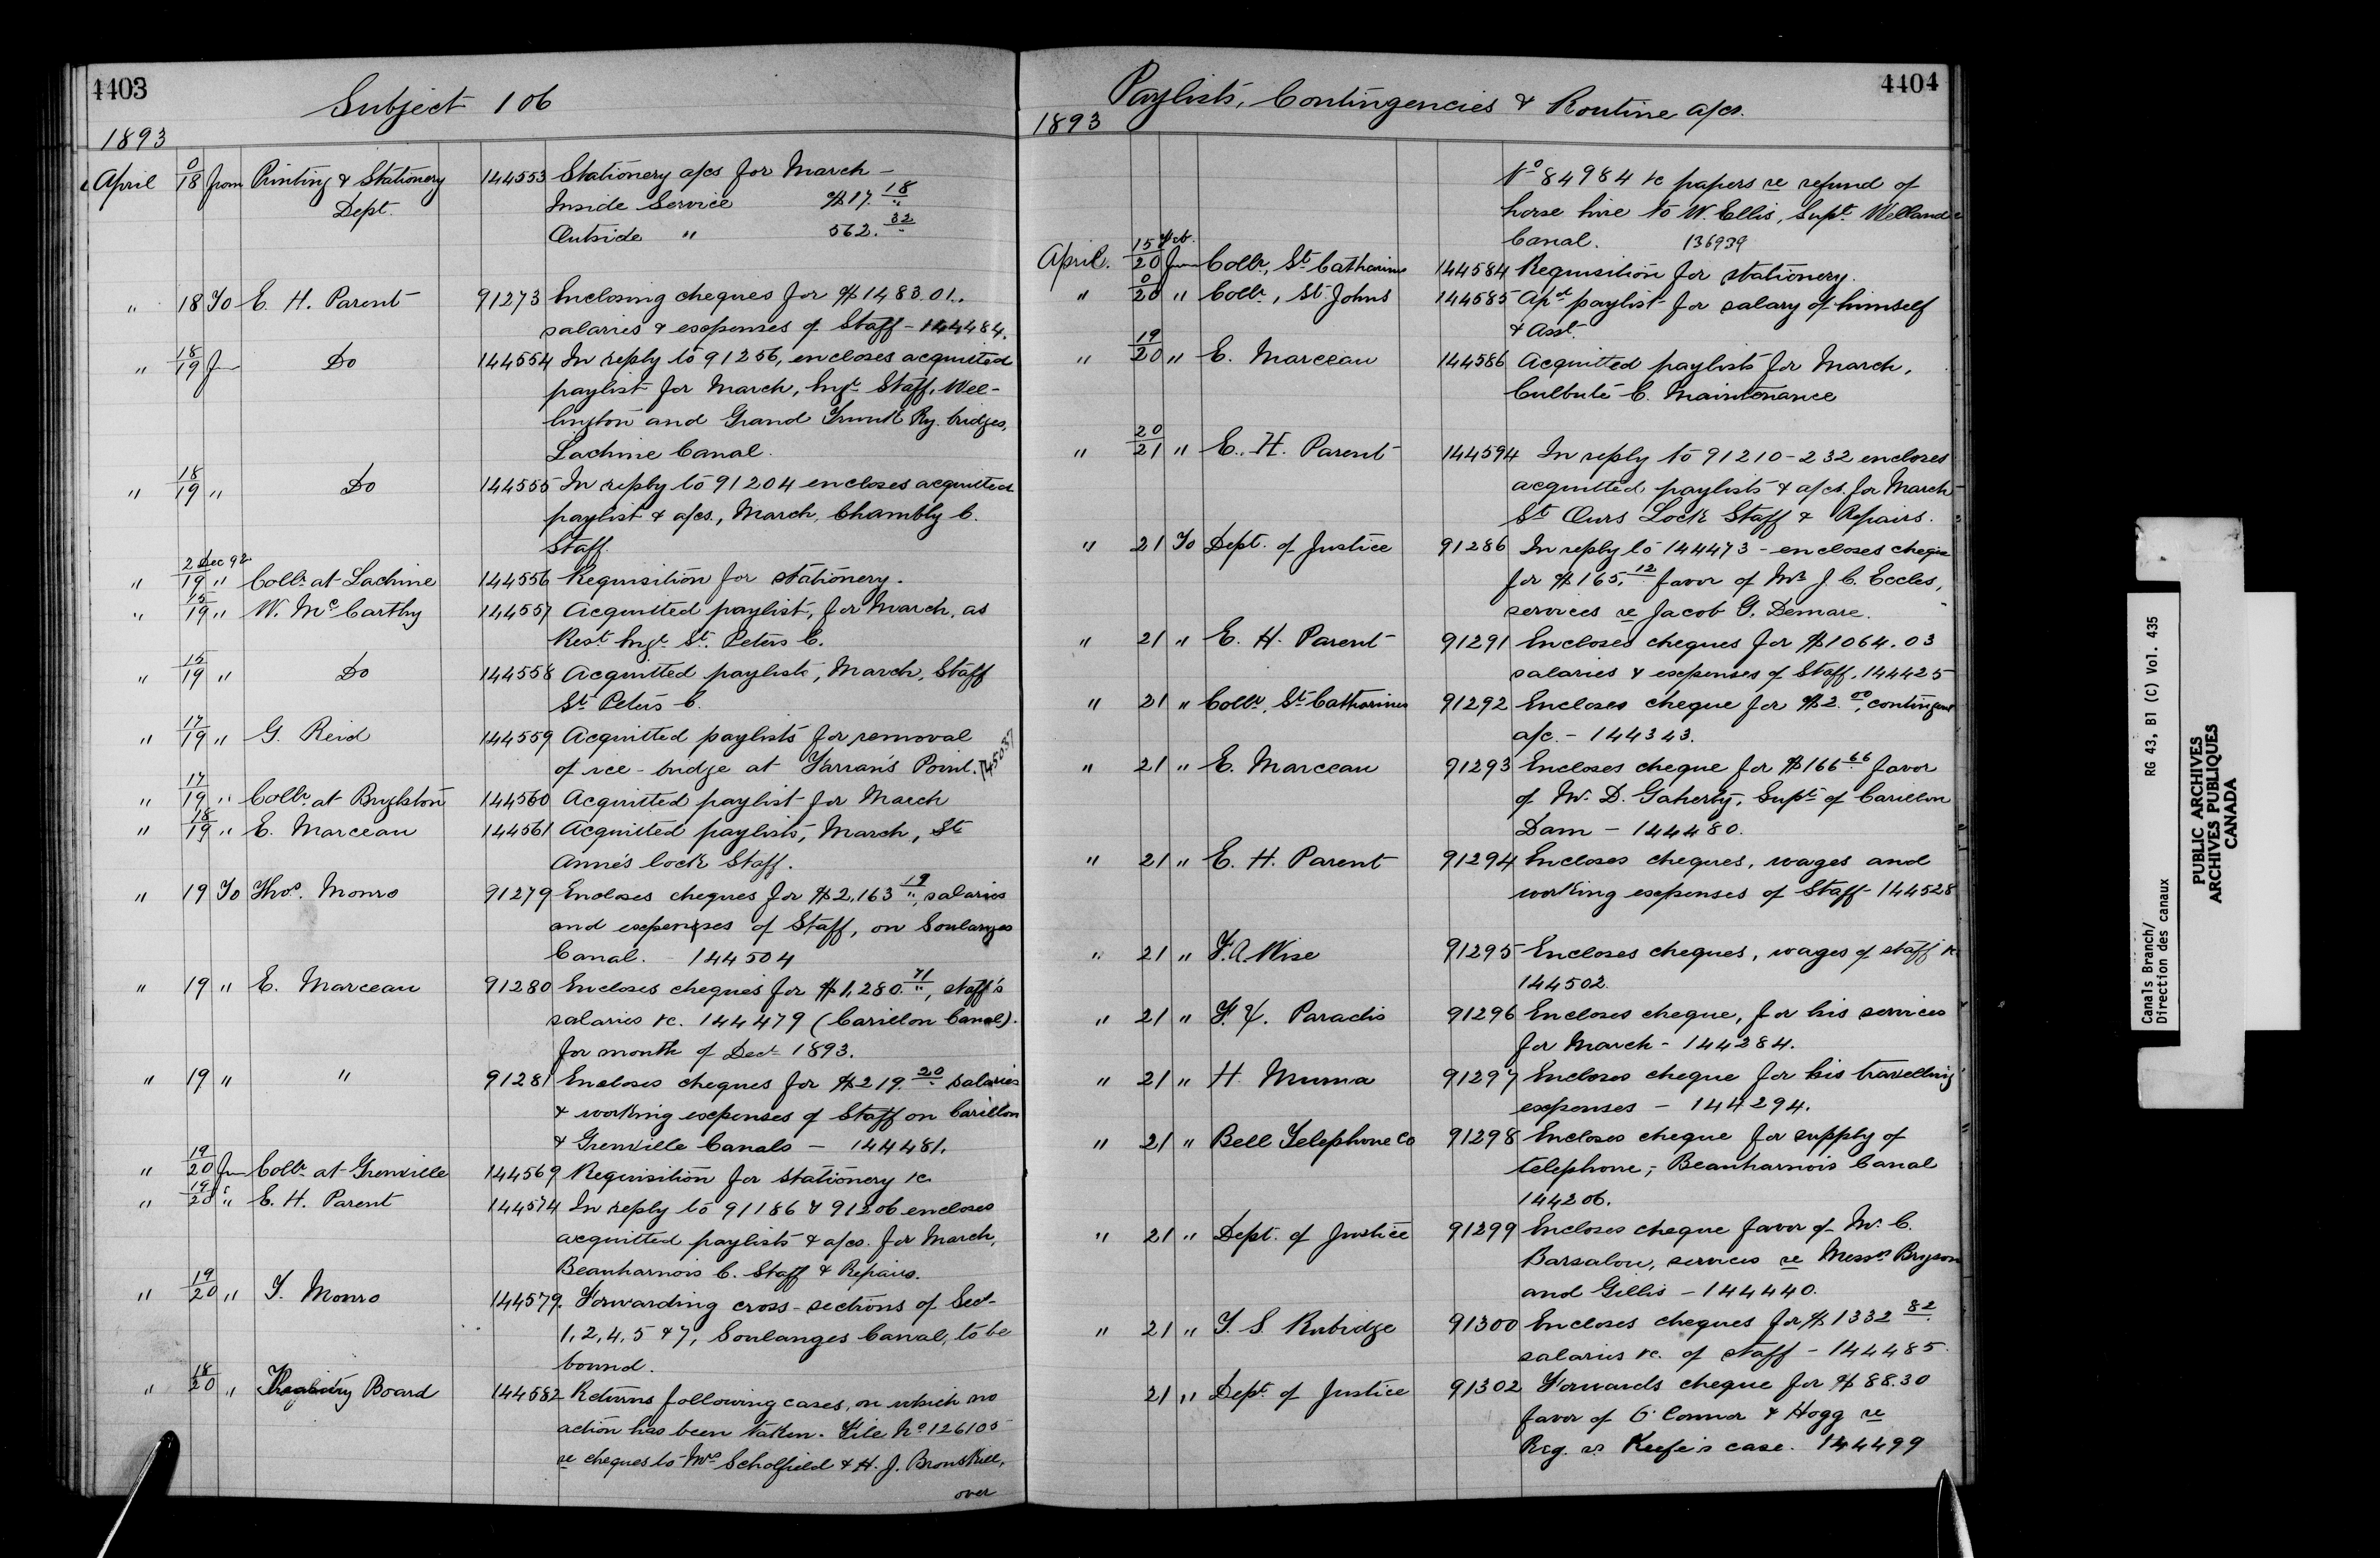 4403
Subject 106
1893
April 0/18 from Printing & Stationery 144553 Stationery a/cs for March -
Dept. Inside Service $17.18
Outside " 562.32
" 18 To E. H. Parent 91273 Enclosing cheques for $1483.01.,
salaries & expenses of Staff - 144484.
" 18/19 from Do 144554 In reply to 91256, encloses acquitted
paylist for March, Engr. Staff, Wel-
lington and Grand Trunk Ry. bridges,
Lachine Canal.
" 18/19 " Do 144555 In reply to 91204 encloses acquitted
paylist & a/cs., March, Chambly C.
Staff.
" 2 Dec 92/19 " Collr. at Lachine 144556 Requisition for stationery.
" 15/19 " W. McCarthy 144557 Acquitted paylist, for March, as
Rest. Engr. St. Peters C.
" 15/19 " Do 144558 Acquitted paylists, March, Staff
St. Peters C.
" 17/19 " G. Reid 144559 Acquitted paylists for removal
of ice-bridge at Farran's Point. 145037
" 17/19 " Collr. at 144560 Acquitted paylist for March
" 18/19 " E. Marceau 144561 Acquitted paylists, March, Ste
Anne's Lock Staff.
" 19 To Thos. Monro 91279 Encloses cheques for $2,163.19, salaries
and expenses of Staff, on Soulanges
Canal. - 144504
" 19 " E. Marceau 91280 Encloses cheques for $1,280.71, staff's
salaries &c. 144479 (Carillon Canal).
for month of Decr 1893.
" 19 " " 91281 Encloses cheques for $219.20 salaries
& working expenses of Staff on Carillon
& Grenville Canals - 144481.
" 19/20 from Collr. at Grenville 144569 Requisition for stationery &c
" 19/20 " E. H. Parent 144574 In reply to 91186 & 91206 encloses
acquitted paylists & a/cs. for March,
Beauharnois C. Staff & Repairs.
" 19/20 " T. Monro 144579 Forwarding cross-sections of Sect.
1, 2, 4, 5 & 7, Soulanges Canal, to be
bound.
" 18/20 " Treasury Board 144582 Returns following cases, on which no
action has been taken. File No. 126105
re cheques to Mrs Scholfield & H. J. Bronskill,
over
4404
Paylists, Contingencies & Routine a/cs.
1893
No 84984 &c papers re refund of
horse hire to W. Ellis, Supt. Welland
Canal. 136939
April. 15 Feb./20 from Collr, St. Catharines 144584 Requisition for stationery.
" 0/20 " Collr, St. Johns 144585 paylist for salary of himself
& Asst.
" 19/20 " E. Marceau 144586 Acquitted paylists for March,
Culbute C. Maintenance
" 20/21 " E. H. Parent 144594 In reply to 91210-232 encloses
acquitted paylists & a/cs. for March
St. Ours Lock Staff & Repairs.
" 21 To Dept. of Justice 91286 In reply to 144473 - encloses cheque
for $165.12 favor of Mr. J. C. Eccles,
services re Jacob G. Demare.
" 21 " E. H. Parent 91291 Encloses cheques for $1064.03
salaries & expenses of Staff. 144425
" 21 " Collr, St. Catharines 91292 Encloses cheque for $2.00, contingent
a/c. - 144343.
" 21 " E. Marceau 91293 Encloses cheque for $166.66 favor
of Mr. D. Gaherty, Supt. of Carillon
Dam - 144480.
" 21 " E. H. Parent 91294 Encloses cheques, wages and
working expenses of Staff - 144528
" 21 " F. A. Wise 91295 Encloses cheques, wages of staff &c
144502.
" 21 " F. X. Paradis 91296 Encloses cheque, for his services
for March - 144284.
" 21 " H. Muma 91297 Encloses cheque for his travelling
expenses - 144294.
" 21 " Bell Telephone Co 91298 Encloses cheque for supply of
telephone, - Beauharnois Canal
144206.
" 21 " Dept. of Justice 91299 Encloses cheque favor of Mr. C.
Barsalou, services re Messrs Bryson
and Gillis - 144440.
" 21 " T. S. Rubidge 91300 Encloses cheques for $1332.82
salaries &c. of staff - 144485.
21 " Dept. of Justice 91302 Forwards cheque for $88.30
favor of O'Connor & Hogg re
Reg. vs Keefe's case. 144499
Canals Branch/ RG 43, B1 (C) Vol. 435
Direction des canaux
PUBLIC ARCHIVES
ARCHIVES PUBLIQUES
CANADA